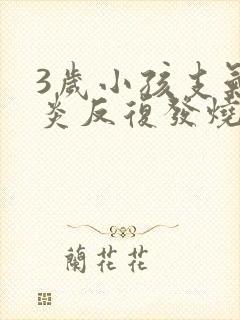 3歲小孩支氣
炎反復發燒
蘭花花